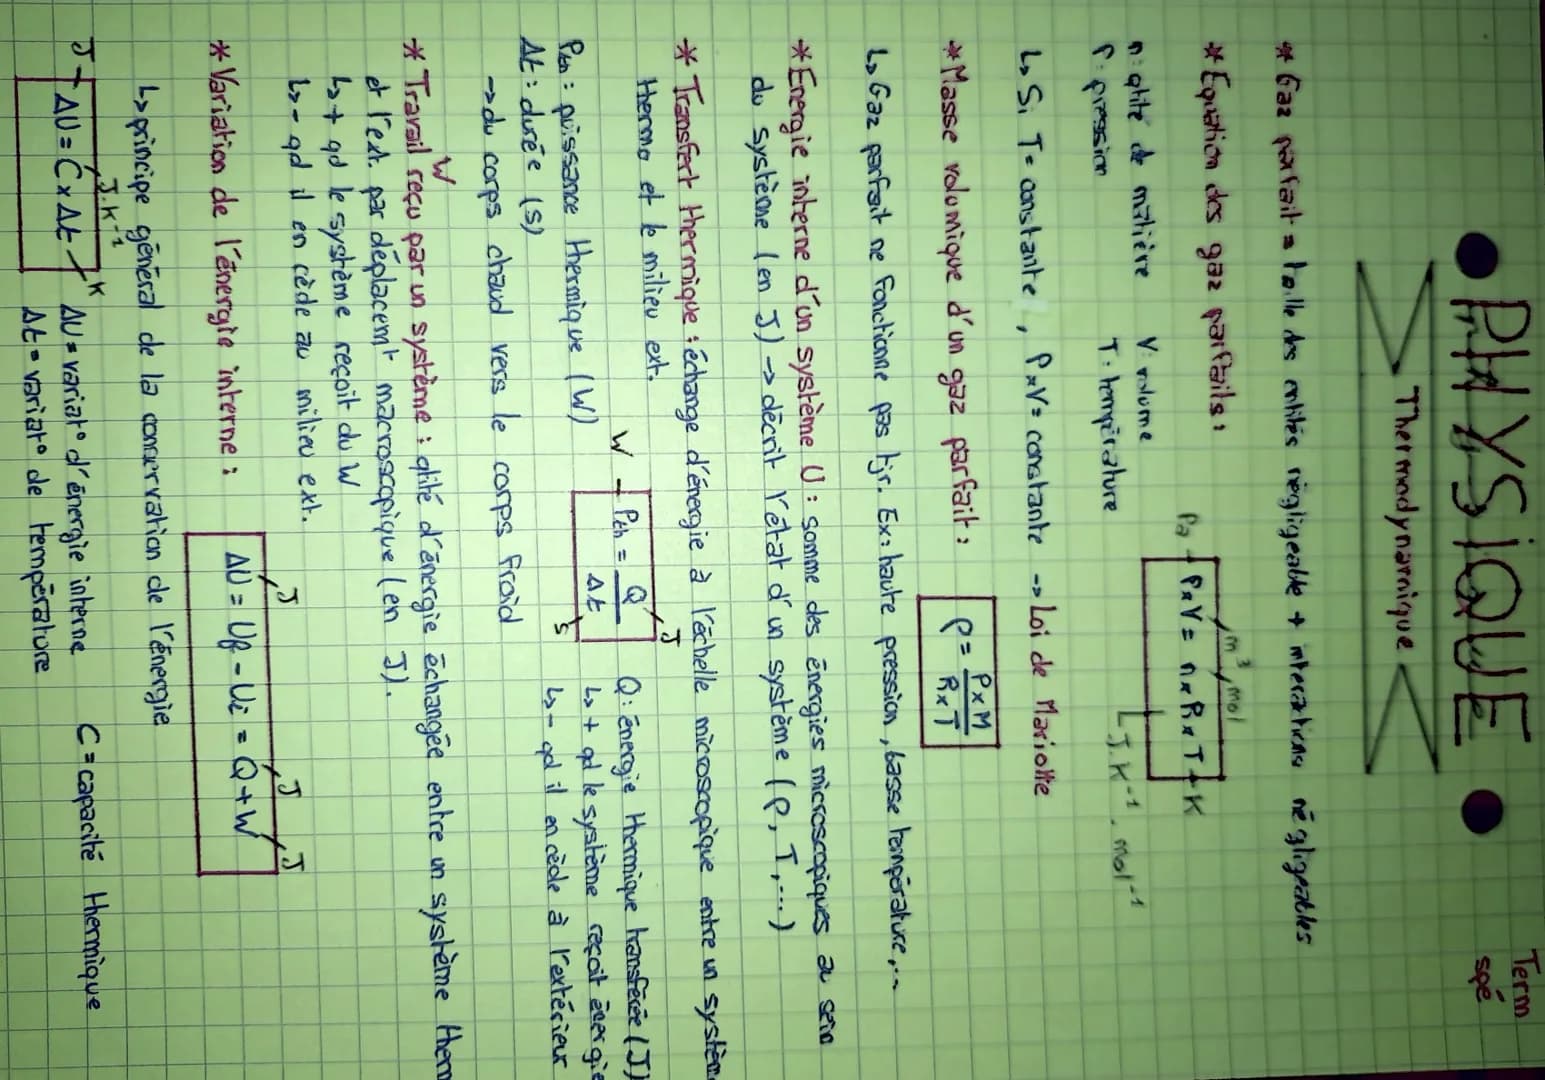 PHYSIQUE
Term
spé
Thermodynamique
* Gaz parfait = taille des entités négligeable + interactions négligeables
* Equation des gaz parfaits :
Pa m³ mol
P x V = n x R x T K
J.K⁻¹.mol⁻¹
n : qtité de matière V : volume
P : pression T : température
↳ Si T = constante, P x V = constante → Loi de Mariotte
* Masse volumique d'un gaz parfait :
ρ = P x M / R x T
↳ Gaz parfait ne fonctionne pas tjr. Ex : haute pression, basse température,...
* Energie interne d'un système U : somme des énergies microscopiques au sein
du système (en J) → décrit l'état d'un système (P, T,...)
* Transfert thermique : échange d'énergie à l'échelle microscopique entre un système
thermo et le milieu ext.
W Pth = Q / Δt J s
Q : énergie thermique transférée (J)
↳ + qd le système reçoit énergie
↳ - qd il en cède à l'extérieur
Pth : puissance thermique (W)
Δt : durée (s)
→ du corps chaud vers le corps froid
W
* Travail reçu par un système : qtité d'énergie échangée entre un système therm
et l'ext. par déplacemt macroscopique (en J).
↳ + qd le système reçoit du W
↳ - qd il en cède au milieu ext.
* Variation de l'énergie interne :
J J J
ΔU = Uf - Ui = Q + W
↳ principe général de la conservation de l'énergie
J.K⁻¹
J ΔU = C x Δt K
ΔU = variat° d'énergie interne C = capacité thermique
Δt = variat° de température